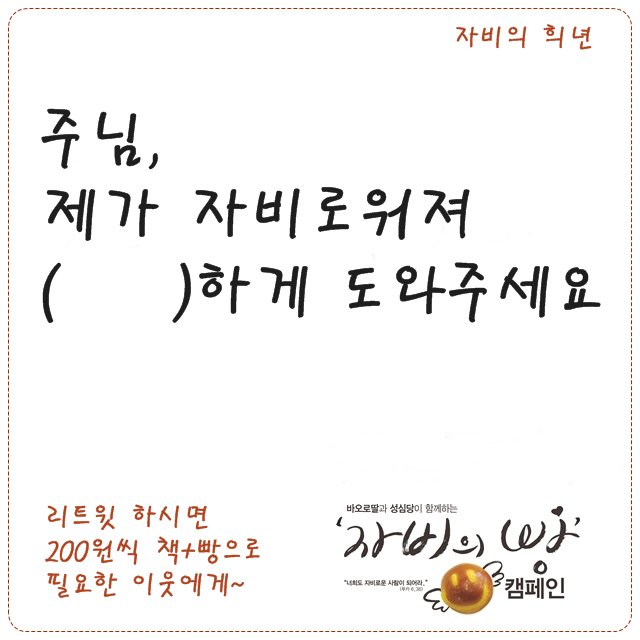 자비의 희년
주님,
제가 자비로워져
( )하게 도와주세요
리트윗 하시면
200원씩 책+빵으로
필요한 이웃에게~
바오로딸과 성심당이 함께하는
'자비의 빵'
"너희도 자비로운 사람이 되어라."
(루카 6,36)
캠페인